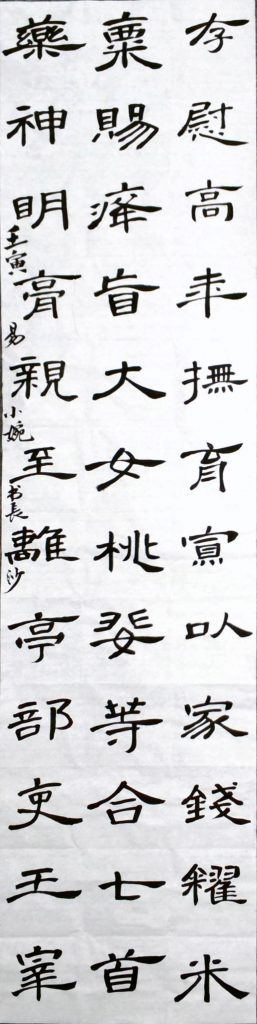 存慰高年撫育寡以家錢糴米
粟賜癃盲大女桃婓等合七首
藥神明膏親至離亭部吏王宰
壬寅 易小婉书長沙